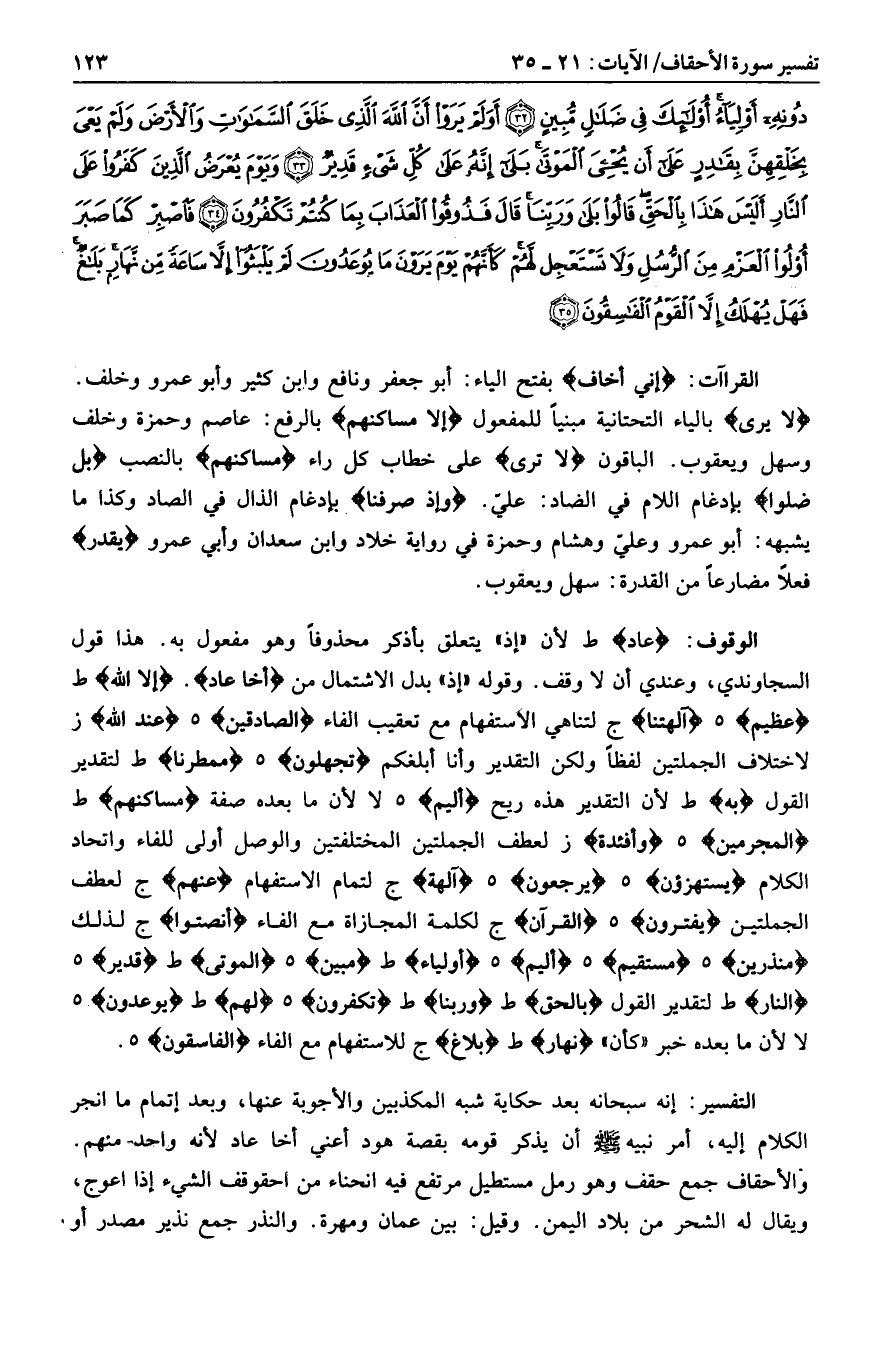 تفسير سورة الأحقاف/ الآيات: ٢١ ـ ٣٥ ١٢٣
دُونِهِۦٓ أَوْلِيَآءُ ۚ أُوْلَٰٓئِكَ فِى ضَلَٰلٍ مُّبِينٍ ﴿٣٢﴾ أَوَلَمْ يَرَوْا۟ أَنَّ ٱللَّهَ ٱلَّذِى خَلَقَ ٱلسَّمَٰوَٰتِ وَٱلْأَرْضَ وَلَمْ يَعْىَ
بِخَلْقِهِنَّ بِقَٰدِرٍ عَلَىٰٓ أَن يُحْـِۧىَ ٱلْمَوْتَىٰ ۚ بَلَىٰٓ إِنَّهُۥ عَلَىٰ كُلِّ شَىْءٍ قَدِيرٌ ﴿٣٣﴾ وَيَوْمَ يُعْرَضُ ٱلَّذِينَ كَفَرُوا۟ عَلَى
ٱلنَّارِ أَلَيْسَ هَٰذَا بِٱلْحَقِّ ۖ قَالُوا۟ بَلَىٰ وَرَبِّنَا ۚ قَالَ فَذُوقُوا۟ ٱلْعَذَابَ بِمَا كُنتُمْ تَكْفُرُونَ ﴿٣٤﴾ فَٱصْبِرْ كَمَا صَبَرَ
أُوْلُوا۟ ٱلْعَزْمِ مِنَ ٱلرُّسُلِ وَلَا تَسْتَعْجِل لَّهُمْ ۚ كَأَنَّهُمْ يَوْمَ يَرَوْنَ مَا يُوعَدُونَ لَمْ يَلْبَثُوٓا۟ إِلَّا سَاعَةً مِّن نَّهَارٍۭ ۚ بَلَٰغٌ ۚ
فَهَلْ يُهْلَكُ إِلَّا ٱلْقَوْمُ ٱلْفَٰسِقُونَ ﴿٣٥﴾
القراآت: ﴿إني أخاف﴾ بفتح الياء: أبو جعفر ونافع وابن كثير وأبو عمرو وخلف.
﴿لا يرى﴾ بالياء التحتانية مبنياً للمفعول ﴿إلا مساكنهم﴾ بالرفع: عاصم وحمزة وخلف
وسهل ويعقوب. الباقون ﴿لا ترى﴾ على خطاب كل راء ﴿مساكنهم﴾ بالنصب ﴿بل
ضلوا﴾ بإدغام اللام في الضاد: عليّ. ﴿وإذ صرفنا﴾ بإدغام الذال في الصاد وكذا ما
يشبهه: أبو عمرو وعليّ وهشام وحمزة في رواية خلاد وابن سعدان وأبي عمرو ﴿يقدر﴾
فعلاً مضارعاً من القدرة: سهل ويعقوب.
الوقوف: ﴿عاد﴾ ط لأن «إذ» يتعلق بأذكر محذوفاً وهو مفعول به. هذا قول
السجاوندي، وعندي أن لا وقف. وقوله «إذ» بدل الاشتمال من ﴿أخا عاد﴾. ﴿إلا الله﴾ ط
﴿عظيم﴾ ٥ ﴿آلهتنا﴾ ج لتناهي الاستفهام مع تعقيب الفاء ﴿الصادقين﴾ ٥ ﴿عند الله﴾ ز
لاختلاف الجملتين لفظاً ولكن التقدير وأنا أبلغكم ﴿تجهلون﴾ ٥ ﴿ممطرنا﴾ ط لتقدير
القول ﴿به﴾ ط لأن التقدير هذه ريح ﴿أليم﴾ ٥ لا لأن ما بعده صفة ﴿مساكنهم﴾ ط
﴿المجرمين﴾ ٥ ﴿وأفئدة﴾ ز لعطف الجملتين المختلفتين والوصل أولى للفاء واتحاد
الكلام ﴿يستهزؤن﴾ ٥ ﴿يرجعون﴾ ٥ ﴿آلهة﴾ ج لتمام الاستفهام ﴿عنهم﴾ ج لعطف
الجملتين ﴿يفترون﴾ ٥ ﴿القرآن﴾ ج لكلمة المجازاة مع الفاء ﴿أنصتوا﴾ ج لذلك
﴿منذرين﴾ ٥ ﴿مستقيم﴾ ٥ ﴿أليم﴾ ٥ ﴿أولياء﴾ ط ﴿مبين﴾ ٥ ﴿الموتى﴾ ط ﴿قدير﴾ ٥
﴿النار﴾ ط لتقدير القول ﴿بالحق﴾ ط ﴿وربنا﴾ ط ﴿تكفرون﴾ ٥ ﴿لهم﴾ ط ﴿يوعدون﴾ ٥
لا لأن ما بعده خبر «كأن» ﴿نهار﴾ ط ﴿بلاغ﴾ ج للاستفهام مع الفاء ﴿الفاسقون﴾ ٥.
التفسير: إنه سبحانه بعد حكاية شبه المكذبين والأجوبة عنها، وبعد إتمام ما انجر
الكلام إليه، أمر نبيه ﷺ أن يذكر قومه بقصة هود أعني أخا عاد لأنه واحد منهم.
والأحقاف جمع حقف وهو رمل مستطيل مرتفع فيه انحناء من احقوقف الشيء إذا اعوج،
ويقال له الشحر من بلاد اليمن. وقيل: بين عمان ومهرة. والنذر جمع نذير مصدر أو